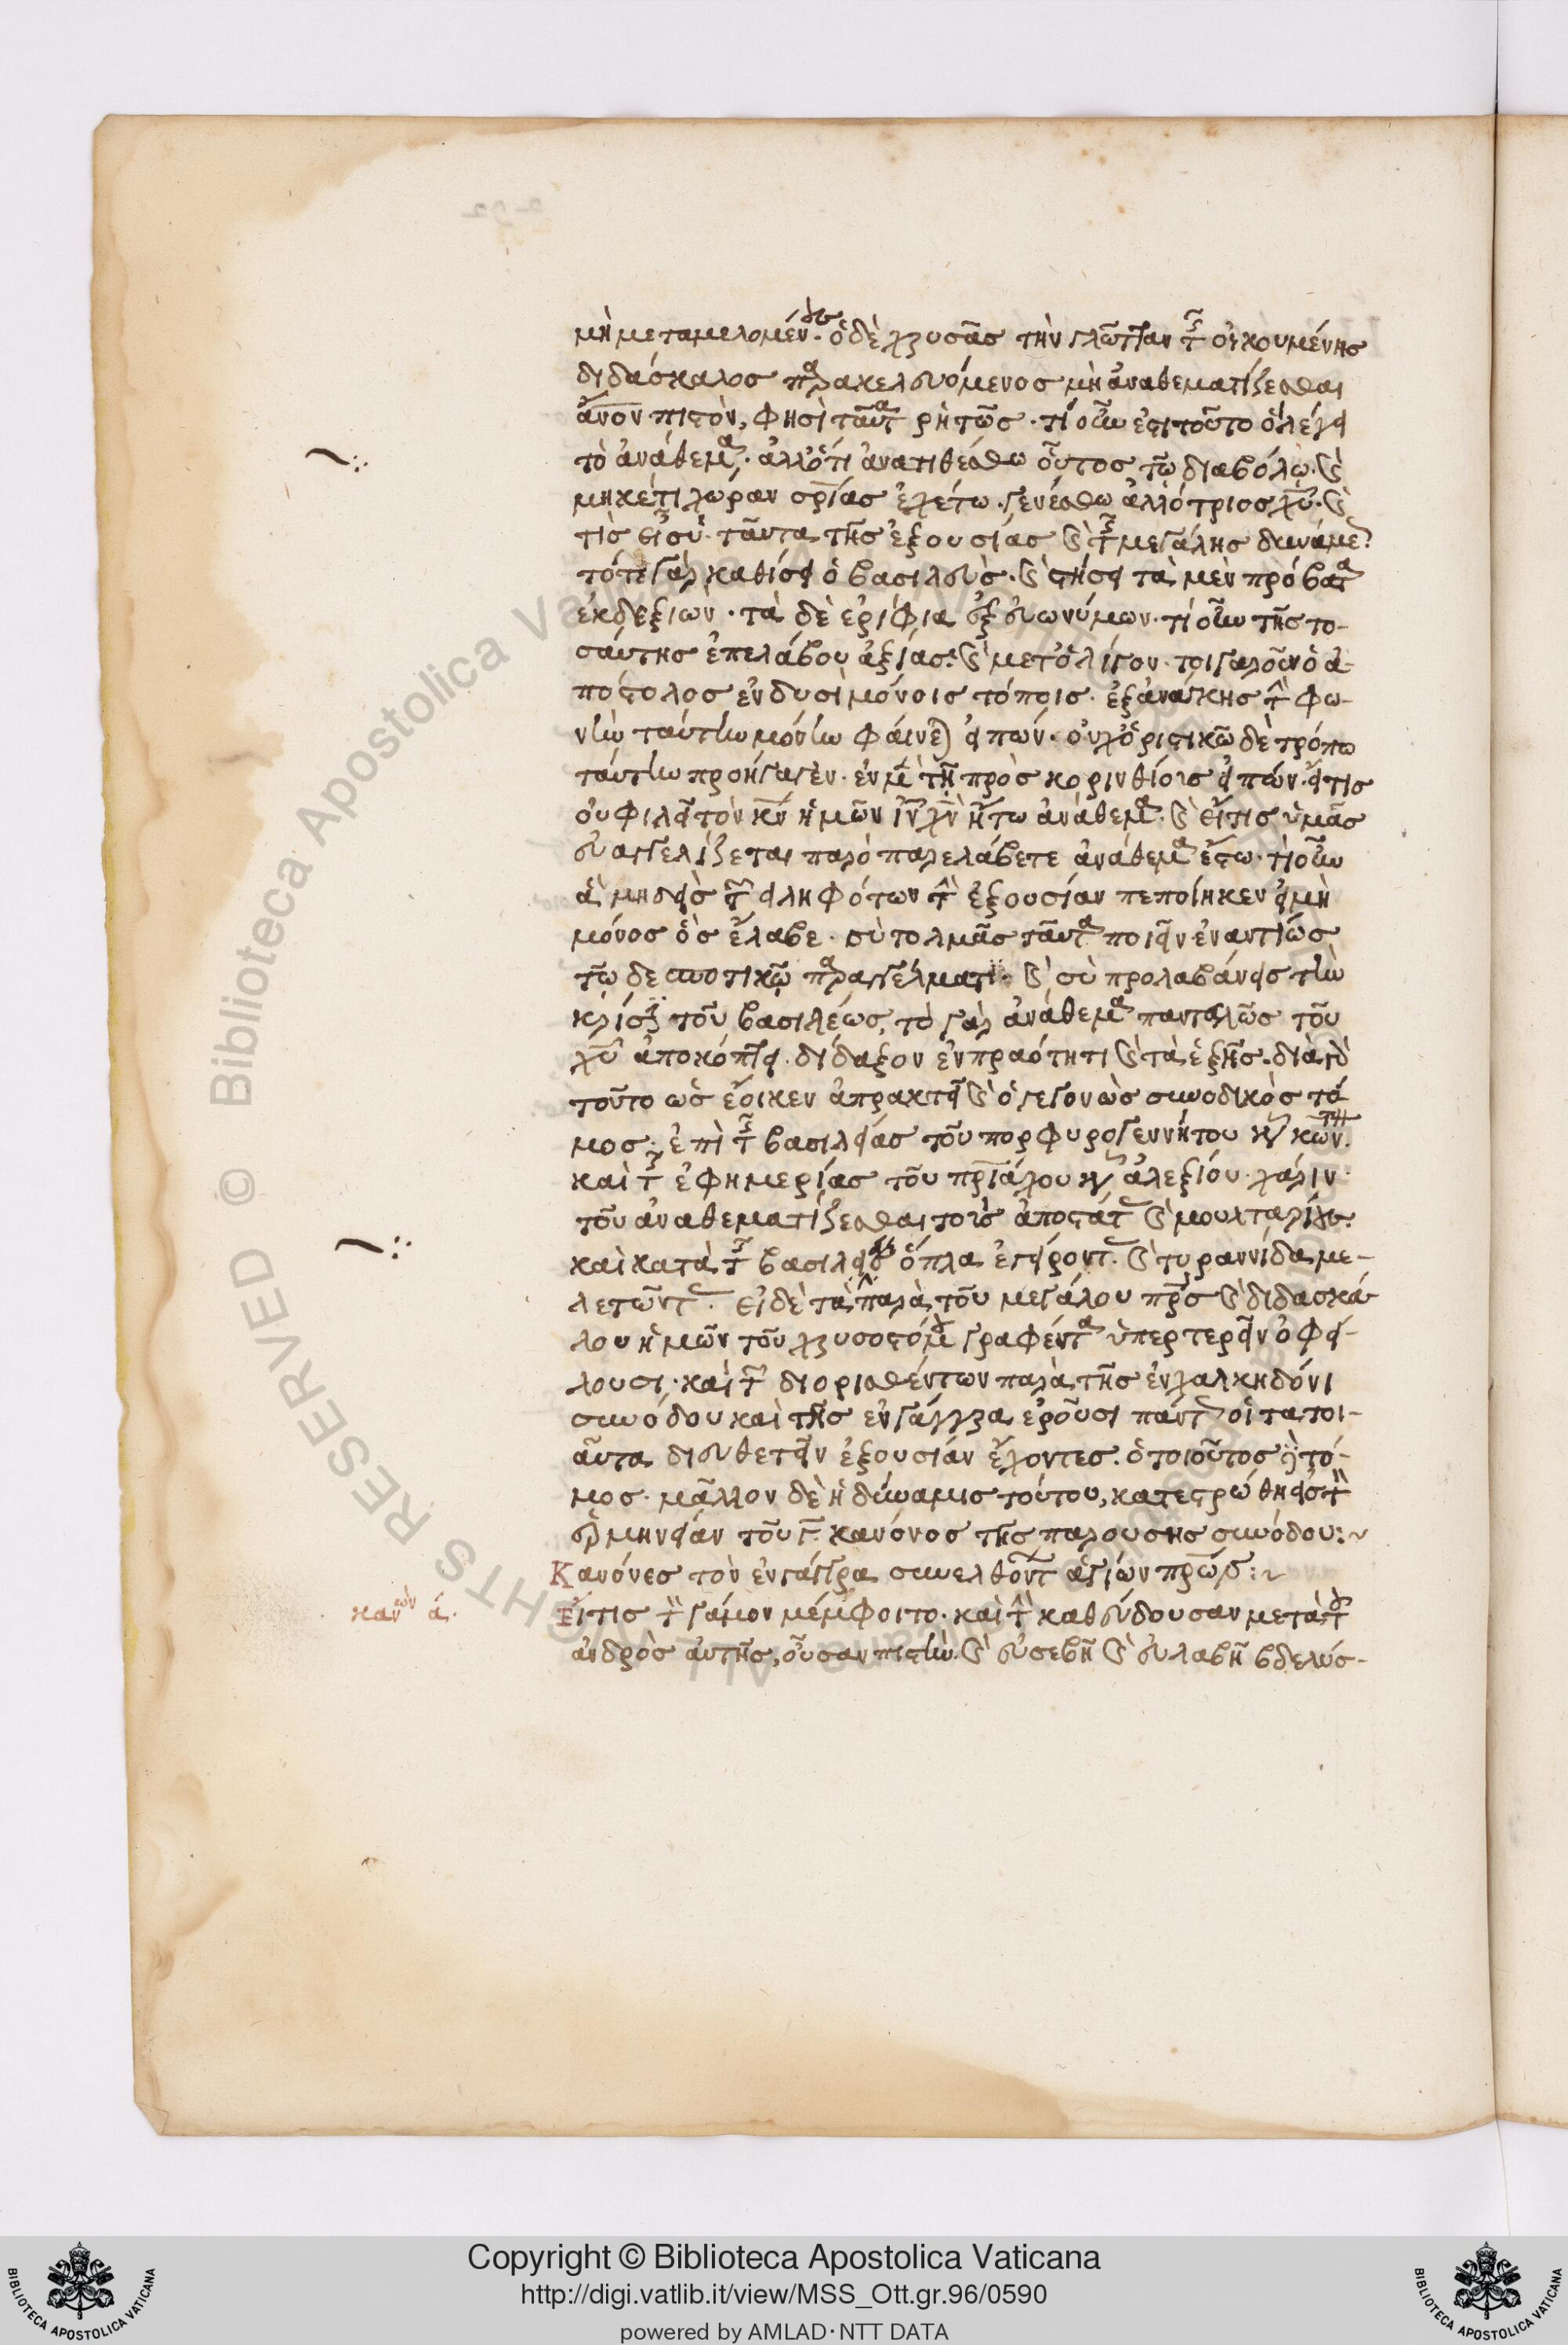 μὴ μεταμελομένους· ὁ δὲ χρυσᾶς τὴν γλῶτταν τῆς οἰκουμένης
διδάσκαλος παρακελευόμενος μὴ ἀναθεματίζεσθαι
ἄνον πιστὸν, φησὶ ταῦτα ρητῶς· τί οὖν ἐστι τοῦτο ὁ λέγει
τὸ ἀνάθεμα, ἀλλ' ὅτι ἀνατιθέσθω οὗτος τῶ διαβόλω· καὶ
μηκέτι χώραν σρίας ἐχέτω· γενέσθω ἀλλότριος χυ· καὶ
τίς εἶ σὺ· ταῦτα τῆς ἐξουσίας καὶ τῆς μεγάλης δυνάμε
τότε γὰρ καθίσει ὁ βασιλεὺς· καὶ στήσει τὰ μὲν πρόβατα
ἐκ δεξιῶν· τὰ δὲ ἐρίφια ἐξ εὐωνύμων· τί οὖν τῆς το-
σαύτης ἐπελάβου ἀξίας· καὶ μετ' ὀλίγον· τοιγαροῦν ὁ ἀ-
πόστολος ἐν δυσὶ μόνοις τόποις· ἐξ ἀνάγκης τὴν φω-
νὴν ταύτην μόνην φαίνεται εἰπών· οὐχ ὁριστικῶ δὲ τρόπω
ταύτην προήγαγεν· ἐν μὲν τῆ πρὸς κορινθίοις εἰπών· εἴ τις
οὐ φιλεῖ τὸν κν ἡμῶν ιν χν ἤτω ἀνάθεμα· καὶ εἴ τις ὑμᾶς
εὐαγγελίζεται παρ' ὃ παρελάβετε ἀνάθεμα ἔστω· τί οὖν
ἃ μηδεὶς τῶν εἰληφότων τὴν ἐξουσίαν πεποίηκεν εἰ μὴ
μόνος ὃς ἔλαβε· σὺ τολμᾶς ταῦτα ποιεῖν ἐναντίως
τῶ δεσποτικῶ παραγγέλματι· καὶ σὺ προλαβάνεις τὴν
κρίσιν τοῦ βασιλέως, τὸ γὰρ ἀνάθεμα παντελῶς τοῦ
χυ ἀποκόπτει· δίδαξον ἐν πραότητι καὶ τὰ ἑξῆς· διὰ γὰρ
τοῦτο ὡς ἔοικεν ἀπρακτεῖ καὶ ὁ γεγονὼς συνοδικὸς τό
μος· ἐπὶ τῆς βασιλείας τοῦ πορφυρογεννήτου κυρ κων.
καὶ τῆς ἐφημερίας τοῦ πριάρχου κυρ ἀλεξίου· χάριν
τοῦ ἀναθεματίζεσθαι τοὺς ἀποστάτας καὶ μουλταρίους·
καὶ κατὰ τῆς βασιλείας ὅπλα ἐγείροντας· καὶ τυραννίδα με-
λετῶντας· εἰ δὲ τὰ παρὰ τοῦ μεγάλου πρς καὶ διδασκά-
λου ἡμῶν τοῦ χρυσοστόμου γραφέντα ὑπερτερεῖν ὀφεί-
λουσι· καὶ τῶν διορισθέντων παρὰ τῆς ἐν χαλκηδόνι
συνόδου καὶ τῆς ἐν γάγγρα, ἐροῦσι πάντες οἱ τὰ τοι-
αῦτα διευθετεῖν ἐξουσίαν ἔχοντες· ὁ τοιοῦτος γὰρ τό-
μος· μᾶλλον δὲ ἡ δύναμις τούτου, κατεστρώθη εἰς τὴν
ἑρμηνείαν τοῦ γ κανόνος τῆς παρούσης συνόδου:~
Κανόνες τὸν ἐν γάγγρα συνελθόντων ἁγίων πρων:~
κανών ά. Εἴ τις τὸν γάμον μέμφοιτο· καὶ τὴν καθεύδουσαν μετὰ τοῦ
ἀνδρὸς αὐτῆς, οὖσαν πιστὴν· καὶ εὐσεβῆ καὶ εὐλαβῆ βδελύσ-
Copyright © Biblioteca Apostolica Vaticana
http://digi.vatlib.it/view/MSS_Ott.gr.96/0590
powered by AMLAD·NTT DATA